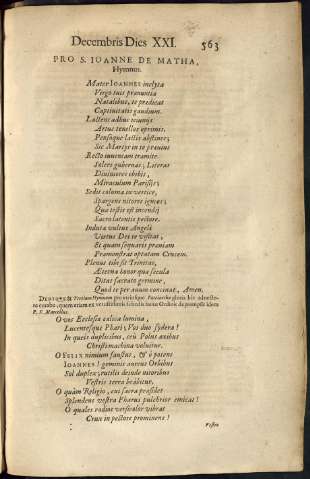 Decembris Dies XXI.
563
PRO S. IOANNE DE MATHA,
Hymnus.
Mater IOANNES inclyta
Virgo tuis pronuntia
Natalibus, te prædicat
Captiuitatis gaudium.
Lactens adhuc ieiunijs
Artus tenellos opprimis.
Pensúque lactis abstines;
Sic Martyr in te præuius
Recto iuuentam tramite
Solers gubernas; Literas
Diuiniores ebibis,
Miraculum Parisijs;
Sedit columna in vertice,
Spargens nitores igneæ;
Qua testis est incendij
Sacro latentis pectore.
Induta vultus Angeli
Virtus Dei te visitat,
Et quam sequaris præuiam
Præmonstrat optatam Crucem.
Plenus tibi sit Trinitas,
Æterna honor qua sæcula
Ditas sacrato germine,
Quod te per æuum concinat, Amen.
Tertium Hymnum pro vtriusque Patriarchæ gloria hic
P. F. Marcellus.
O vos Ecclesiæ calica lumina,
Lucentesque Phari; Vos duo sydera!
In queis duplicibus, ceu Polus axibus
Christi machina voluitur.
O FELIX nimium faustus, & ô potens
IOANNES! geminis aureus Orbibus
Sol duplex, rutilis deinde nitoribus
Vestris terra beabitur.
O quàm Religio, cui sacra præsidet
Splendens vestra Pharus pulchrior emicat!
O quales radios versicolor vibrat
Crux in pectore prominens!
Vestra